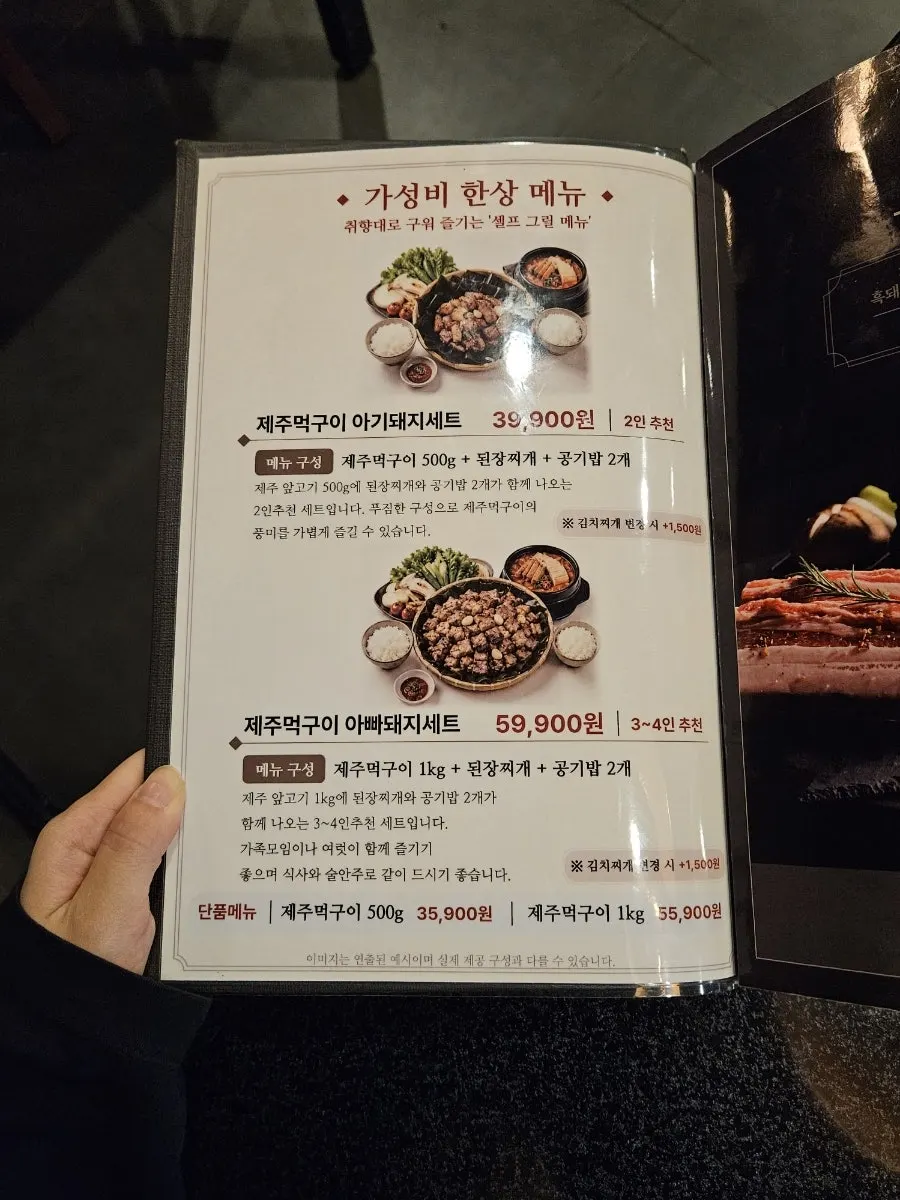 ◆ 가성비 한상 메뉴 ◆
취향대로 구워 즐기는 '셀프 그릴 메뉴'
제주먹구이 아기돼지세트 39,900원 | 2인 추천
메뉴 구성 제주먹구이 500g + 된장찌개 + 공기밥 2개
제주 앞고기 500g에 된장찌개와 공기밥 2개가 함께 나오는
2인추천 세트입니다. 푸짐한 구성으로 제주먹구이의
풍미를 가볍게 즐길 수 있습니다.
※ 김치찌개 변경 시 +1,500원
제주먹구이 아빠돼지세트 59,900원 | 3~4인 추천
메뉴 구성 제주먹구이 1kg + 된장찌개 + 공기밥 2개
제주 앞고기 1kg에 된장찌개와 공기밥 2개가
함께 나오는 3~4인추천 세트입니다.
가족모임이나 여럿이 함께 즐기기
좋으며 식사와 술안주로 같이 드시기 좋습니다.
※ 김치찌개 변경 시 +1,500원
단품메뉴 | 제주먹구이 500g 35,900원 | 제주먹구이 1kg 55,900원
이미지는 연출된 예시이며 실제 제공 구성과 다를 수 있습니다.
흑돼